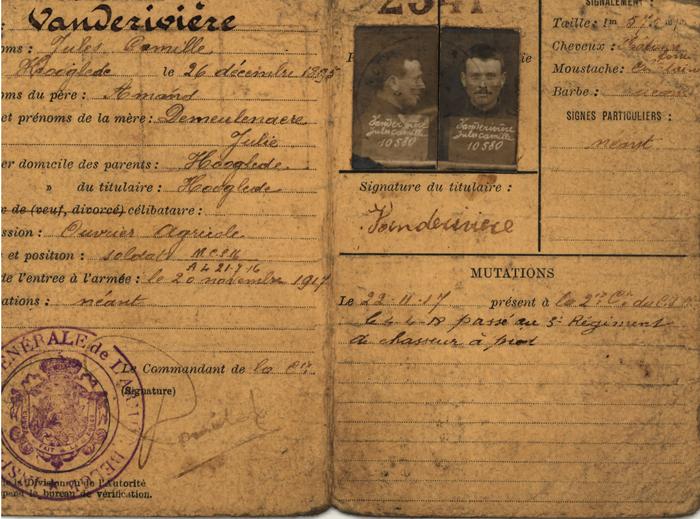 Vanderivière
oms : Jules Camille
Hooglede le 26 décembre 1895
oms du père : Amand
et prénoms de la mère : Demeulenaere
Julie
er domicile des parents : Hooglede
» du titulaire : Hooglede
e de (veuf, divorcé) célibataire :
ssion : Ouvrier Agricole
e et position : soldat M C S M
A 4 21-7-16
de l'entree à l'armée : le 20 novembre 1917
ations : néant
GÉNÉRALE de L'A
Le Commandant de la Cie
(Signature)
de la Division ou de l'Autorité
le bureau de vérification.
2547
Vanderivière
Jules Camille
10580
Vanderivière
Jules Camille
10580
Signature du titulaire :
Vanderivière
SIGNALEMENT :
Taille : 1m
Cheveux :
Moustache :
Barbe :
SIGNES PARTICULIERS :
néant
MUTATIONS
Le 22-11-17 présent à la 2e Cie du C.I.
le 4-4-18 passé au 3e Régiment
de chasseur à pied